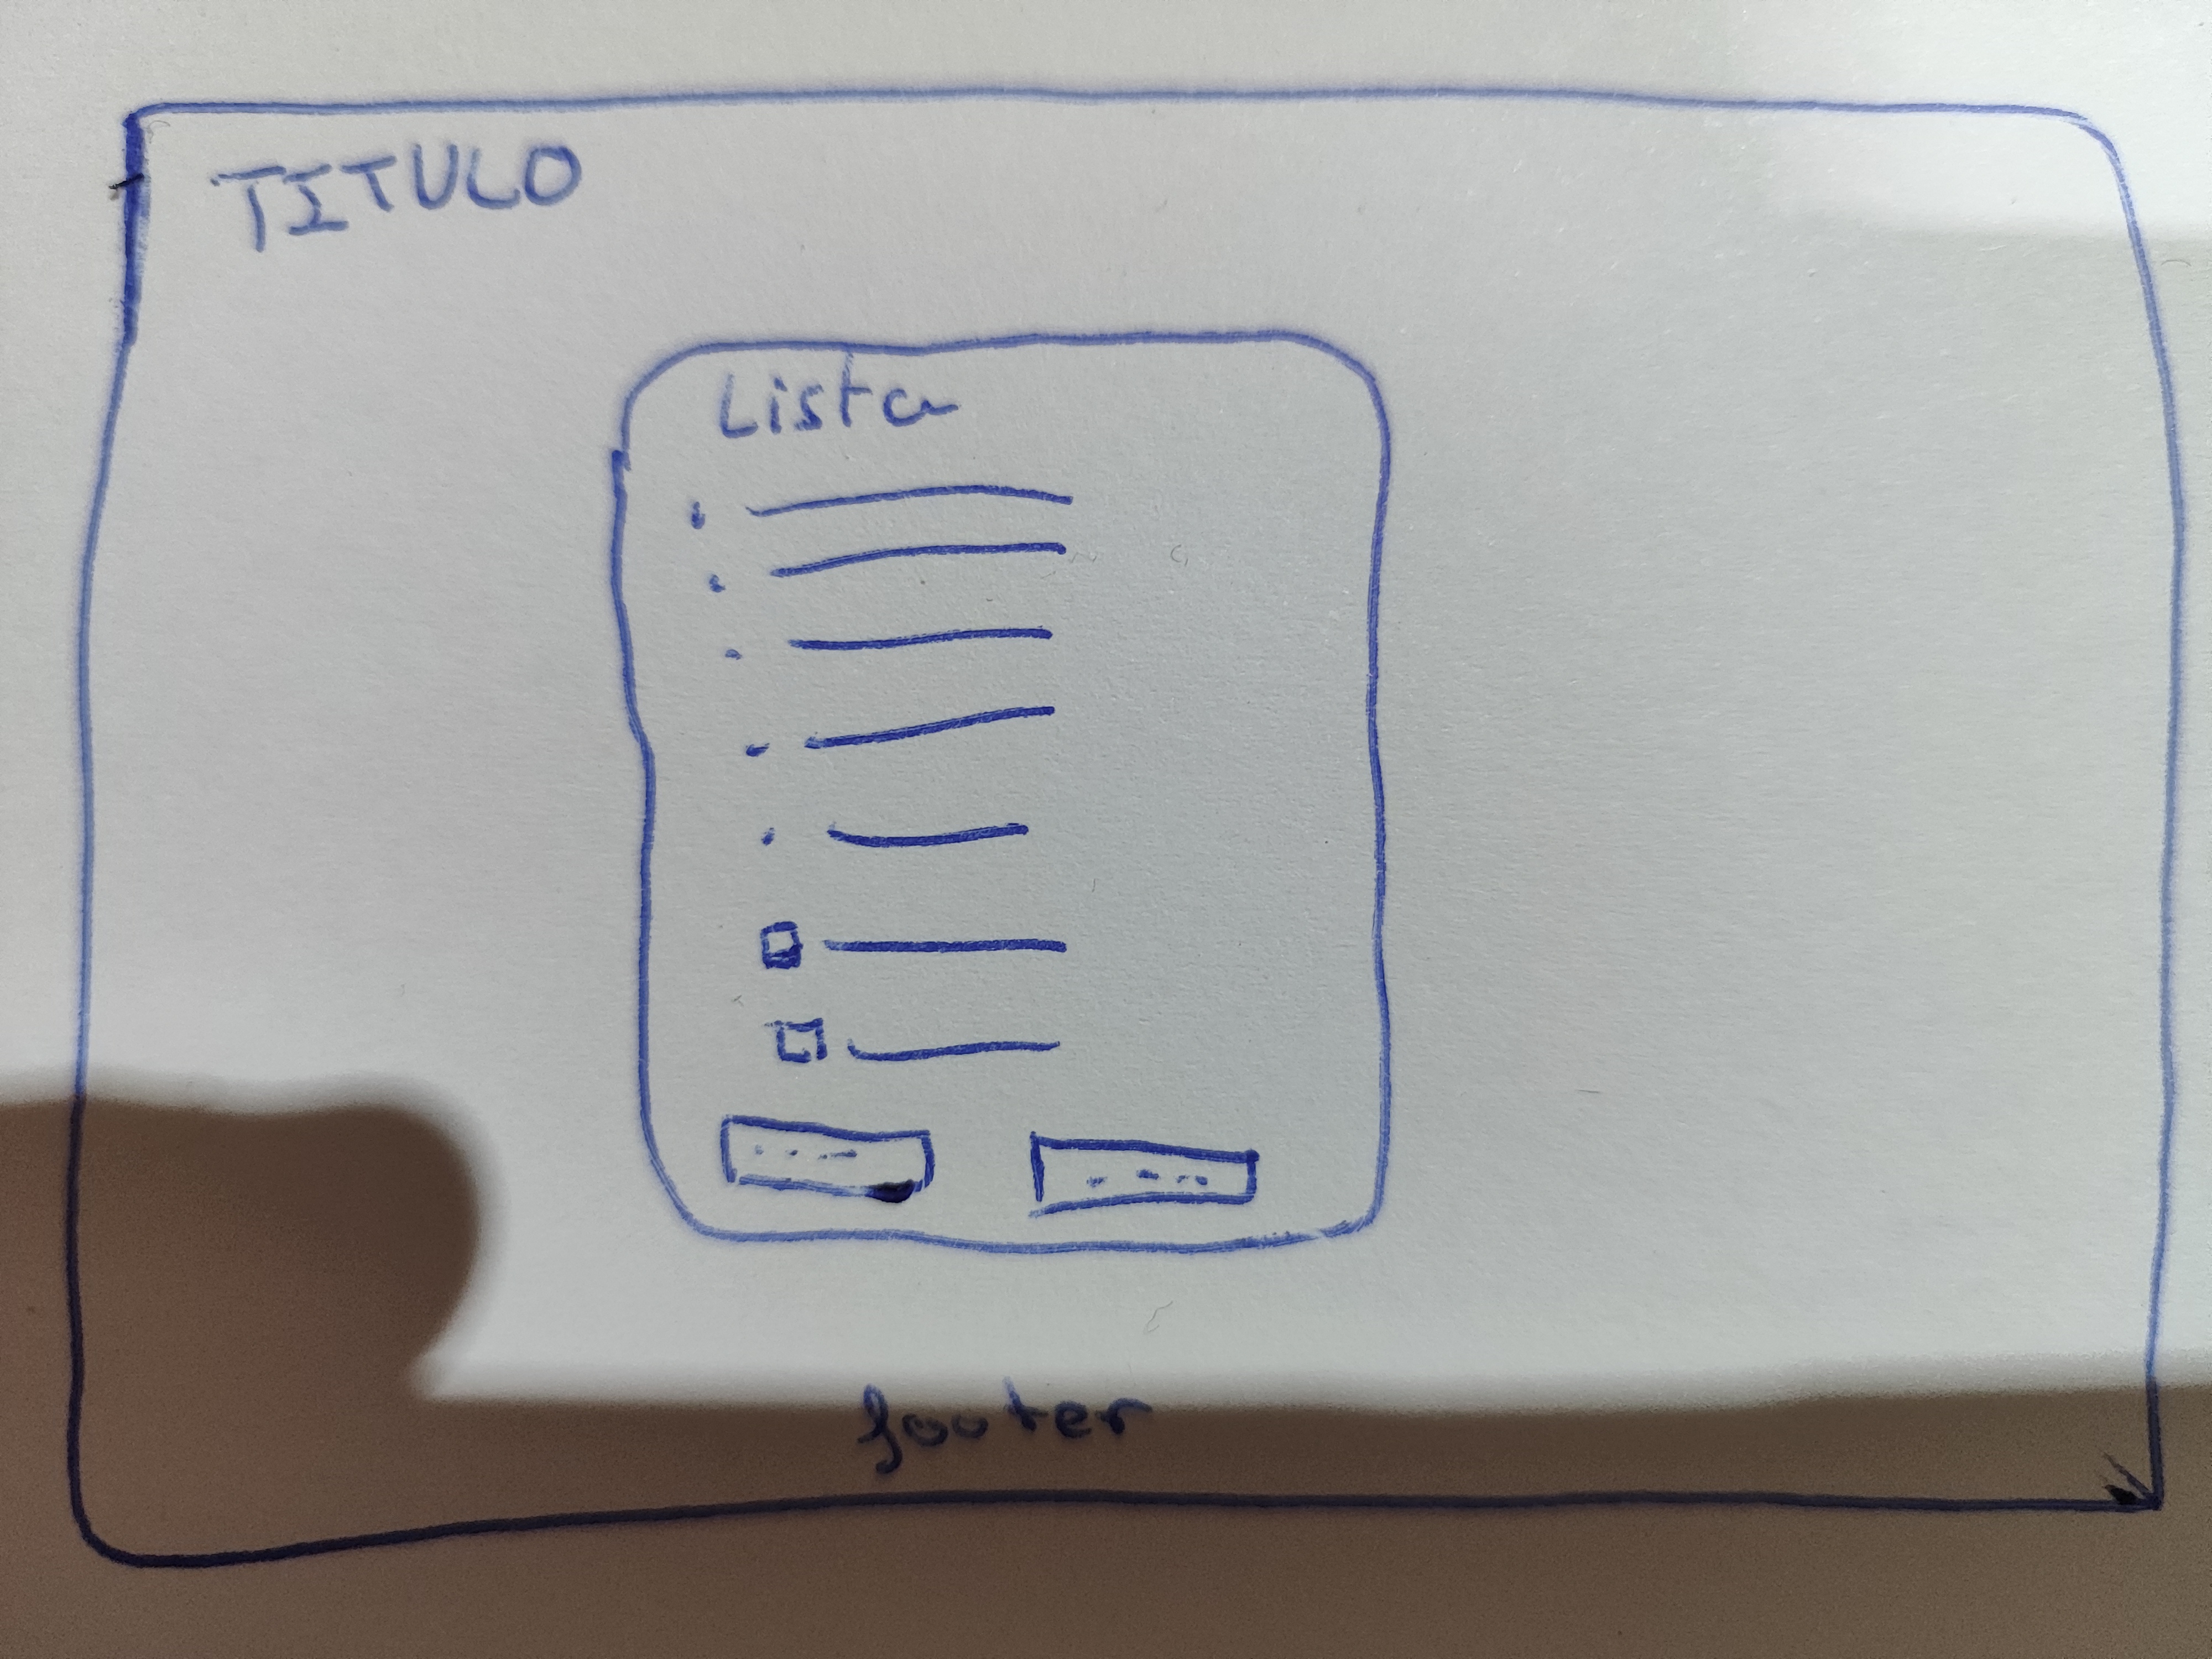 TITULO
Lista
footer